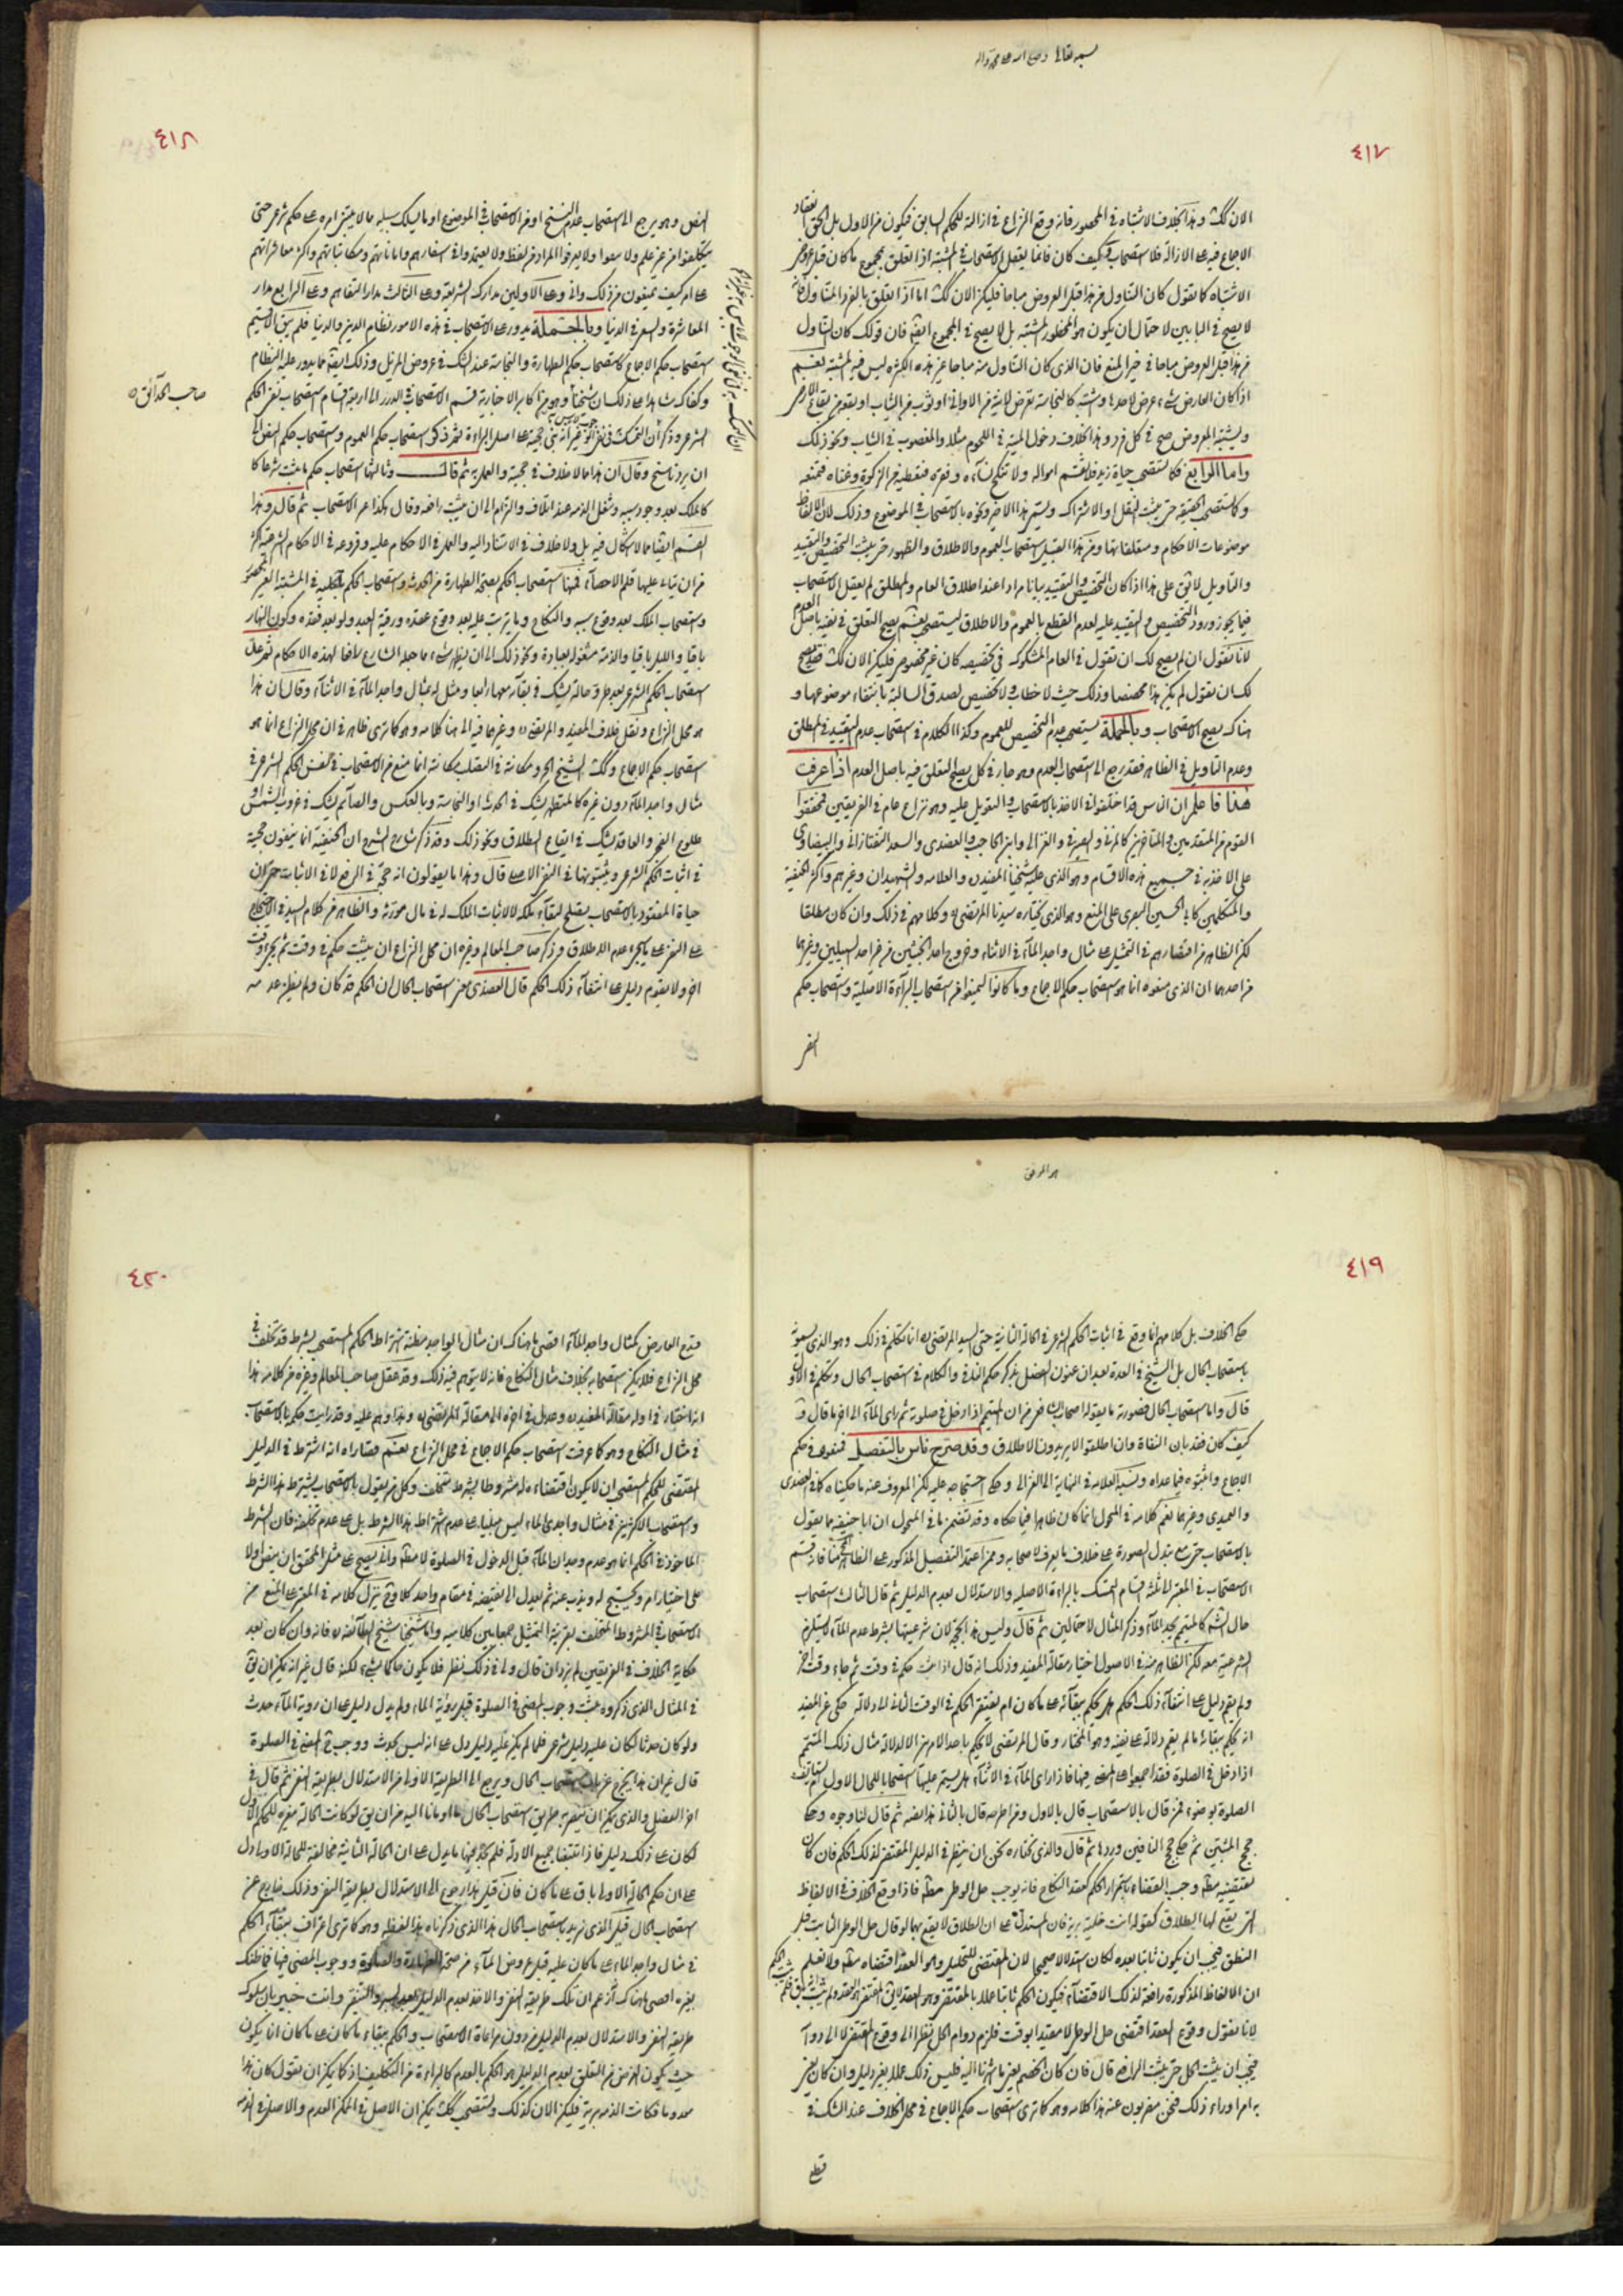 بسمه تعالى وصلى الله على محمد وآله
٤١٧
الان كك وهذا بخلاف الاشتباه في المحصور فانه وقع النزاع في ازالة للحكم السابق فيكون من الاول بل الحق انعقاد
الاجماع فيه على الازالة فلا استصحاب وكيف كان فانما يعقل الاستصحاب في المشتبه اذا تعلق بمجموع ما كان قبل عروض
الاشتباه كما تقول كان التناول من هذا قبل العروض مباحا فليكن الان كك اما اذا تعلق بالفرد المتناول فانه
لا يصح في البابين لاحتمال ان يكون هو المحظور المشتبه بل لا يصح في المجموع ايضا فان قولك كان التناول
من هذا قبل العروض مباحا في خير المنع فان الذي كان التناول منه مباحا غير هذه الكثرة ليس فيه المشتبه نعم
اذا كان العارض شيء عرض لاحدها واشتبه كالنجاسة تعرض لانية من الاواني او لثوب من الثياب او بقعة من بقاع الارض
ويشتبه المعروض صح في كل فرد وهذا بخلاف دخول الميتة في اللحوم مثلا والمغصوب في الثياب ونحو ذلك
واما الرابع فكما تستصحب حياة زيد فلا تقسم امواله ولا تنكح نساءه وفقره فتعطيه من الزكوة وغناه فتمنعه
وكاستصحاب الحقيقة حتى يثبت النقل او الاشتراك ويسمى هذا الاخير ونحوه بالاستصحاب في الموضوع وذلك لان الالفاظ
موضوعات الاحكام ومتعلقاتها ومن هذا القبيل استصحاب العموم والاطلاق والظهور حتى يثبت التخصيص والتقييد
والتاويل لا يق على هذا اذا كان التخصيص والتقييد بيانا مرادا عند اطلاق العام والمطلق لم يعقل الاستصحاب
فيما يجوز ورود التخصيص والتقييد عليه لعدم القطع بالعموم والاطلاق ليستصحب نعم يصح التعلق في نفيه باصل العدم
لانا نقول ان لم يصح لك ان تقول في العام المشكوك في تخصيصه كان غير مخصوص فليكن الان كك فقد يصح
لك ان تقول لم يكن هذا مخصصا وذلك حيث لا خطاب ولا تخصيص لصدق السالبة بانتفاء موضوعها و
هناك يصح الاستصحاب وبالجملة يستصحب عدم التخصيص للعموم وكذا الكلام في استصحاب عدم التقييد في المطلق
وعدم التاويل في الظاهر فقد رجع الى استصحاب العدم وهو جار في كل يصلح التعلق فيه باصل العدم اذا عرفت
هذا فاعلم ان الناس قد اختلفوا في الاخذ بالاستصحاب والتعويل عليه وهو نزاع عام في الفريقين فمحققوا
القوم من المتقدمين والمتاخرين كالمزني والصيرفي والغزالي وابن الحاجب والعضدي والسعد التفتازاني والبيضاوي
على الاخذ به في جميع هذه الاقسام وهو الذي عليه شيخنا المفيد ره والعلامة والشهيدان وغيرهم واكثر الحنفية
والمتكلمين كابي الحسين البصري على المنع وهو الذي يختاره سيدنا المرتضى ره وكلامهم في ذلك وان كان مطلقا
لكن الظاهر من اقتصارهم في التمثيل على مثال واجد الماء في الاثناء وخروج احد الخبثين من غير احد السبيلين وغيرهما
من احدهما ان الذي منعوه انما هو استصحاب حكم الاجماع وما كانوا ليمنعوا من استصحاب البراءة الاصلية واستصحاب حكم
النص
٤١٨
النص وهو يرجع الى استصحاب عدم النسخ او من الاستصحاب في الموضوع او ما يسلك سبيله مما لا يبتني امره على حكم شرعي حتى
على ام كيف يمنعون من ذلك وانى وعلى الاولين مدارك الشريعة وعلى الثالث مدار التفاهم وعلى الرابع مدار
المعاشرة والسعي في الدنيا وبالجملة يدور على الاستصحاب في هذه الامور نظام الدين والدنيا فلم يبق الا
استصحاب حكم الاجماع كاستصحاب حكم الطهارة والنجاسة عند الشك في عروض المزيل وذلك ايضا مما يدور عليه النظام
وكفاك شاهدا على ذلك ان شيخنا وهو من اكابر الاخبارية قسم الاستصحاب في الدرر الى اربعة اقسام استصحاب نفي الحكم
صاحب الحدائق ره
ان يرد ناسخ وقال ان هذا مما لا خلاف في حجيته والعمل به ثم قال وثالثها استصحاب حكم ما ثبت شرعا كا
كالملك بعد وجود سببه وشغل الذمة عند اتلاف والزام الى ان يثبت رافعه وقال هكذا عن الاستصحاب ثم قال وهذا
القسم ايضا مما لا اشكال فيه بل ولا خلاف في الاستناد اليه والعمل في الاحكام عليه وفروعه في الاحكام الشرعية اكثر
من ان ياتي عليها قلم الاحصاء فمنها استصحاب الحكم بصحة الطهارة من الحدث واستصحاب الحكم بالحلية في المشتبه الغير المحصور
واستصحاب الملك بعد وقوع سببه والنكاح وما يترتب عليه بعد وقوع عقده ورقية العبد ولو بعد فقده وكون النهار
باقيا والليل باقيا والذمة مشغولة بعبادة ونحو ذلك الى ان يظهر شيء مما جعله الشارع رافعا لهذه الاحكام ثم جعل
استصحاب الحكم الشرعي بعد طرو حالة يشك في بقائه معها رابعا ومثل له بمثال واجد الماء في الاثناء وقال ان هذا
هو محل النزاع ونقل خلاف المفيد والمرتضى ره وغيرهما فيه الى هنا كلامه وهو كما ترى ظاهر في ان محل النزاع انما هو
استصحاب حكم الاجماع وكك الشيخ الحر ومكانته في التصلب مكانته انما منع من الاستصحاب في نفس الحكم الشرعي في
مثال واجد الماء دون غيره كالمتطهر يشك في الحدث او النجاسة وبالعكس والصائم يشك في غروب الشمس او
طلوع الفجر والعاقد يشك في ايقاع الطلاق ونحو ذلك وقد ذكر شارح الشرح ان الحنفية انما ينفون حجيته
في اثبات الحكم الشرعي ويثبتونها في النفي الاصلي قال وهذا ما يقولون انه حجة في الدفع لا في الاثبات حتى ان
حياة المفقود بالاستصحاب يصلح لبقاء ملكه لا لاثبات الملك له في مال مورثه والظاهر من كلام السيد في الاحتجاج
على النفي على ما يجيء عدم الاطلاق وذكر صاحب المعالم وغيره ان محل النزاع ان يثبت حكم في وقت ثم يجيء وقت
اخر ولا يقوم دليل على انتفاء ذلك الحكم قال العضدي معنى استصحاب الحال ان الحكم قد كان ولم يظن عدمه
هو الموفق
٤١٩
حكي الخلاف بل كلامهم انما وقع في اثبات الحكم الشرعي في الحالة الثانية حتى السيد المرتضى ره انما تكلم في ذلك وهو الذي يسمونه
باستصحاب الحال بل الشيخ في العدة بعد ان عنون الفصل بذكر حكم النافي والكلام في استصحاب الحال وتكلم في الاول
قال واما استصحاب الحال فصورته ما يقوله اصحاب الشافعي من ان المتيمم اذا دخل في صلوته ثم رأى الماء الى اخر ما قال و
كيف كان فقد بان النفاة وان اطلقوا لا يريدون الاطلاق وقد صرح ناس بالتفصيل فنفوه في حكم
الاجماع واثبتوه فيما عداه ونسبه العلامة في النهاية الى الغزالي وحكى احتجاجه عليه لكن المعروف عنه ما حكيناه كما في العضدي
والعميدي وغيرهما نعم كلامه في المنخول انما كان ظاهرا فيما حكاه وقد تضمن ما في المنخول ان ابا حنيفة ما يقول
بالاستصحاب حتى مع تبدل الصورة على خلاف ما يعرف لاصحابه وممن اعتمد التفصيل المذكور على الظاهر المحقق منا فانه قسم
الاستصحاب في المعتبر ثلثة اقسام التمسك بالبراءة الاصلية والاستدلال بعدم الدليل ثم قال الثالث استصحاب
حال الشرع كالمتيمم يجد الماء وذكر المثال لاحتمالين ثم قال وليس هذا بحجة لان شرعيتها بشرط عدم الماء لا يستلزم
الشرعية معه لكن الظاهر منه في الاصول اختيار مقالة المفيد وذلك انه قال اذا ثبت حكم في وقت ثم جاء وقت اخر
ولم يقم دليل على انتفاء ذلك الحكم هل يحكم ببقائه على ما كان ام يفتقر الحكم في الوقت الثاني الى دلالة حكي عن المفيد
انه يحكم ببقائه ما لم يقم دلالة على نفيه وهو المختار وقال المرتضى لا يحكم باحد الامرين الا لدلالة مثال ذلك المتيمم
اذا دخل في الصلوة فقد اجمعوا على المضي فيها فاذا رأى الماء في الاثناء هل يستمر عليها استصحابا للحال الاول ام يستانف
الصلوة بوضوء فمن قال بالاستصحاب قال بالاول ومن اطرحه قال بالثاني هذا لفظه ثم قال لنا وجوه وحكى
حجج المثبتين ثم حكى حجج النافين وردها ثم قال والذي نختاره نحن ان ينظر في الدليل المقتضي لذلك الحكم فان كان
يقتضيه مطلقا وجب القضاء باستمرار الحكم كعقد النكاح فانه يوجب حل الوطي مطلقا فاذا وقع الخلاف في الالفاظ
التي يقع بها الطلاق كقوله انت خلية برية فان المستدل على ان الطلاق لا يقع بهما لو قال حل الوطي الثابت قبل
النطق فيجب ان يكون ثابتا بعده لكان استدلالا صحيحا لان المقتضي للتحليل وهو العقد اقتضاه مطلقا ولا نعلم
ان الالفاظ المذكورة رافعة لذلك الاقتضاء فيكون الحكم ثابتا عملا بالمقتضي وهو العقد لا يق المقتضي هو العقد ولم يثبت انه باق فلم يثبت الحكم
لانا نقول وقوع العقد اقتضى حل الوطي لا مقيدا بوقت فلزم دوام الحل نظرا الى وقوع المقتضي لا الى دوامه
فيجب ان يثبت الحل حتى يثبت الرافع قال فان كان الخصم يعني ما اشرنا اليه فليس ذلك عملا بغير دليل وان كان يعني
به امرا وراء ذلك فنحن مضربون عنه هذا كلامه وهو كما ترى استصحاب حكم الاجماع في محل الخلاف عند الشك في
قطع
٤٢٠
محل النزاع فلا يمكن استصحابه بخلاف مثال النكاح فانه لا يتوهم فيه ذلك وقد غفل صاحب المعالم وغيره من كلامه هذا
انه اختار في اوله مقالة المفيد ره وعدل في اخره الى مقالة المرتضى ره وهذا وهم عليه وقد رايت حكم بالاستصحاب
في مثال النكاح وهو كما عرفت استصحاب حكم الاجماع في محل النزاع نعم قصاراه انه اشترط في الدليل
المقتضي للحكم المستصحب ان لا يكون اقتضاءه له مشروطا بشرط تختلف وكل من يقول بالاستصحاب يشترط هذا الشرط
واستصحاب الاكثرين في مثال واجدي الماء ليس مبنيا على عدم اشتراط هذا الشرط بل على عدم تخلفه فان الشرط
الماخوذ في الحكم انما هو عدم وجدان الماء قبل الدخول في الصلوة لا مطلقا وانى يصح على مثل المحقق ان ينص اولا
على اختيار امر ويحتج له ويذب عنه ثم يعدل الى نقيضه في مقام واحد كلا وح ينزل كلامه في المعتبر على المنع من
الاستصحاب في المشروط المتخلف بقرينة التمثيل جمعا بين كلاميه واما شيخنا شيخ الطائفة ره فانه وان كان بعد
حكاية الخلاف في الفريقين لم يزد ان قال ولي في ذلك نظر فلا يكون حاكما بشيء لكنه قال غير انه يمكن ان يق
في المثال الذي ذكروه يثبت وجوب المضي في الصلوة قبل رؤية الماء ولم يدل دليل على ان روية الماء حدث
ولو كان حدثا لكان عليه دليل شرعي فلما لم يكن عليه دليل دل على انه ليس بحدث ووجب ح المضي في الصلوة
قال غير ان هذا يخرج عن باب استصحاب الحال ويرجع الى الطريقة الاولى من الاستدلال بطريقة النفي ثم قال في
اخر الفصل والذي يمكن ان ينصر به طريق استصحاب الحال ما اومانا اليه من ان يق لو كانت الحالة مغيرة للحكم الاول
لكان على ذلك دليل فاذا تتبعنا جميع الادلة فلم نجد فيها ما يدل على ان الحالة الثانية مخالفة للحالة الاولى دل
على ان حكم الحالة الاولى باق على ما كان فان قيل هذا رجوع الى الاستدلال بطريقة النفي وذلك خارج عن
استصحاب الحال قيل الذي نريد باستصحاب الحال هذا الذي ذكرناه هذا لفظه وهو كما ترى اعتراف ببقاء الحكم
في مثال واجد الماء على ما كان عليه قبل عروض الماء من صحة الطهارة والصلوة ووجوب المضي فيها فما ظنك
بغيره اقصى ما هناك انه زعم ان تلك طريقة النفي والاخذ بعدم الدليل بعد السبر والتنقير وانت خبير بان سلوك
طريقة النفي والاستدلال بعدم الدليل من دون مراعاة الاستصحاب والحكم ببقاء ما كان على ما كان انما يكون
حيث يكون الغرض من التعلق بعدم الدليل هو الحكم بالعدم كالبراءة من التكليف اذ كما يمكن ان يقول كان هذا
معدوما وكانت الذمة بريئة فليكن الان كذلك ويستصحب كك يمكن ان الاصل في الممكن العدم والاصل في الذمة